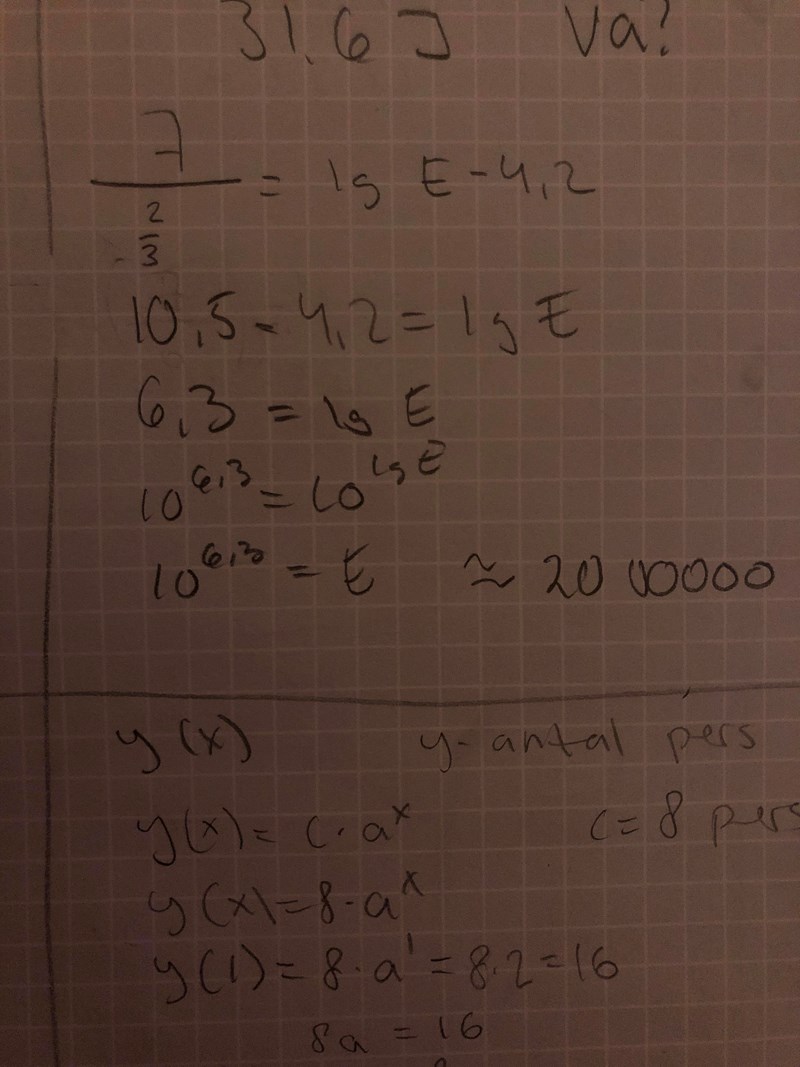 31.6 J Va?
7/(2/3) = lg E - 4,2
10,5 - 4,2 = lg E
6,3 = lg E
10^6,3 = 10^lg E
10^6,3 = E ≃ 20 00000
y(x) y - antal pers
y(x) = C · a^x C = 8 pers
y(x) = 8 · a^x
y(1) = 8 · a^1 = 8 · 2 = 16
8a = 16